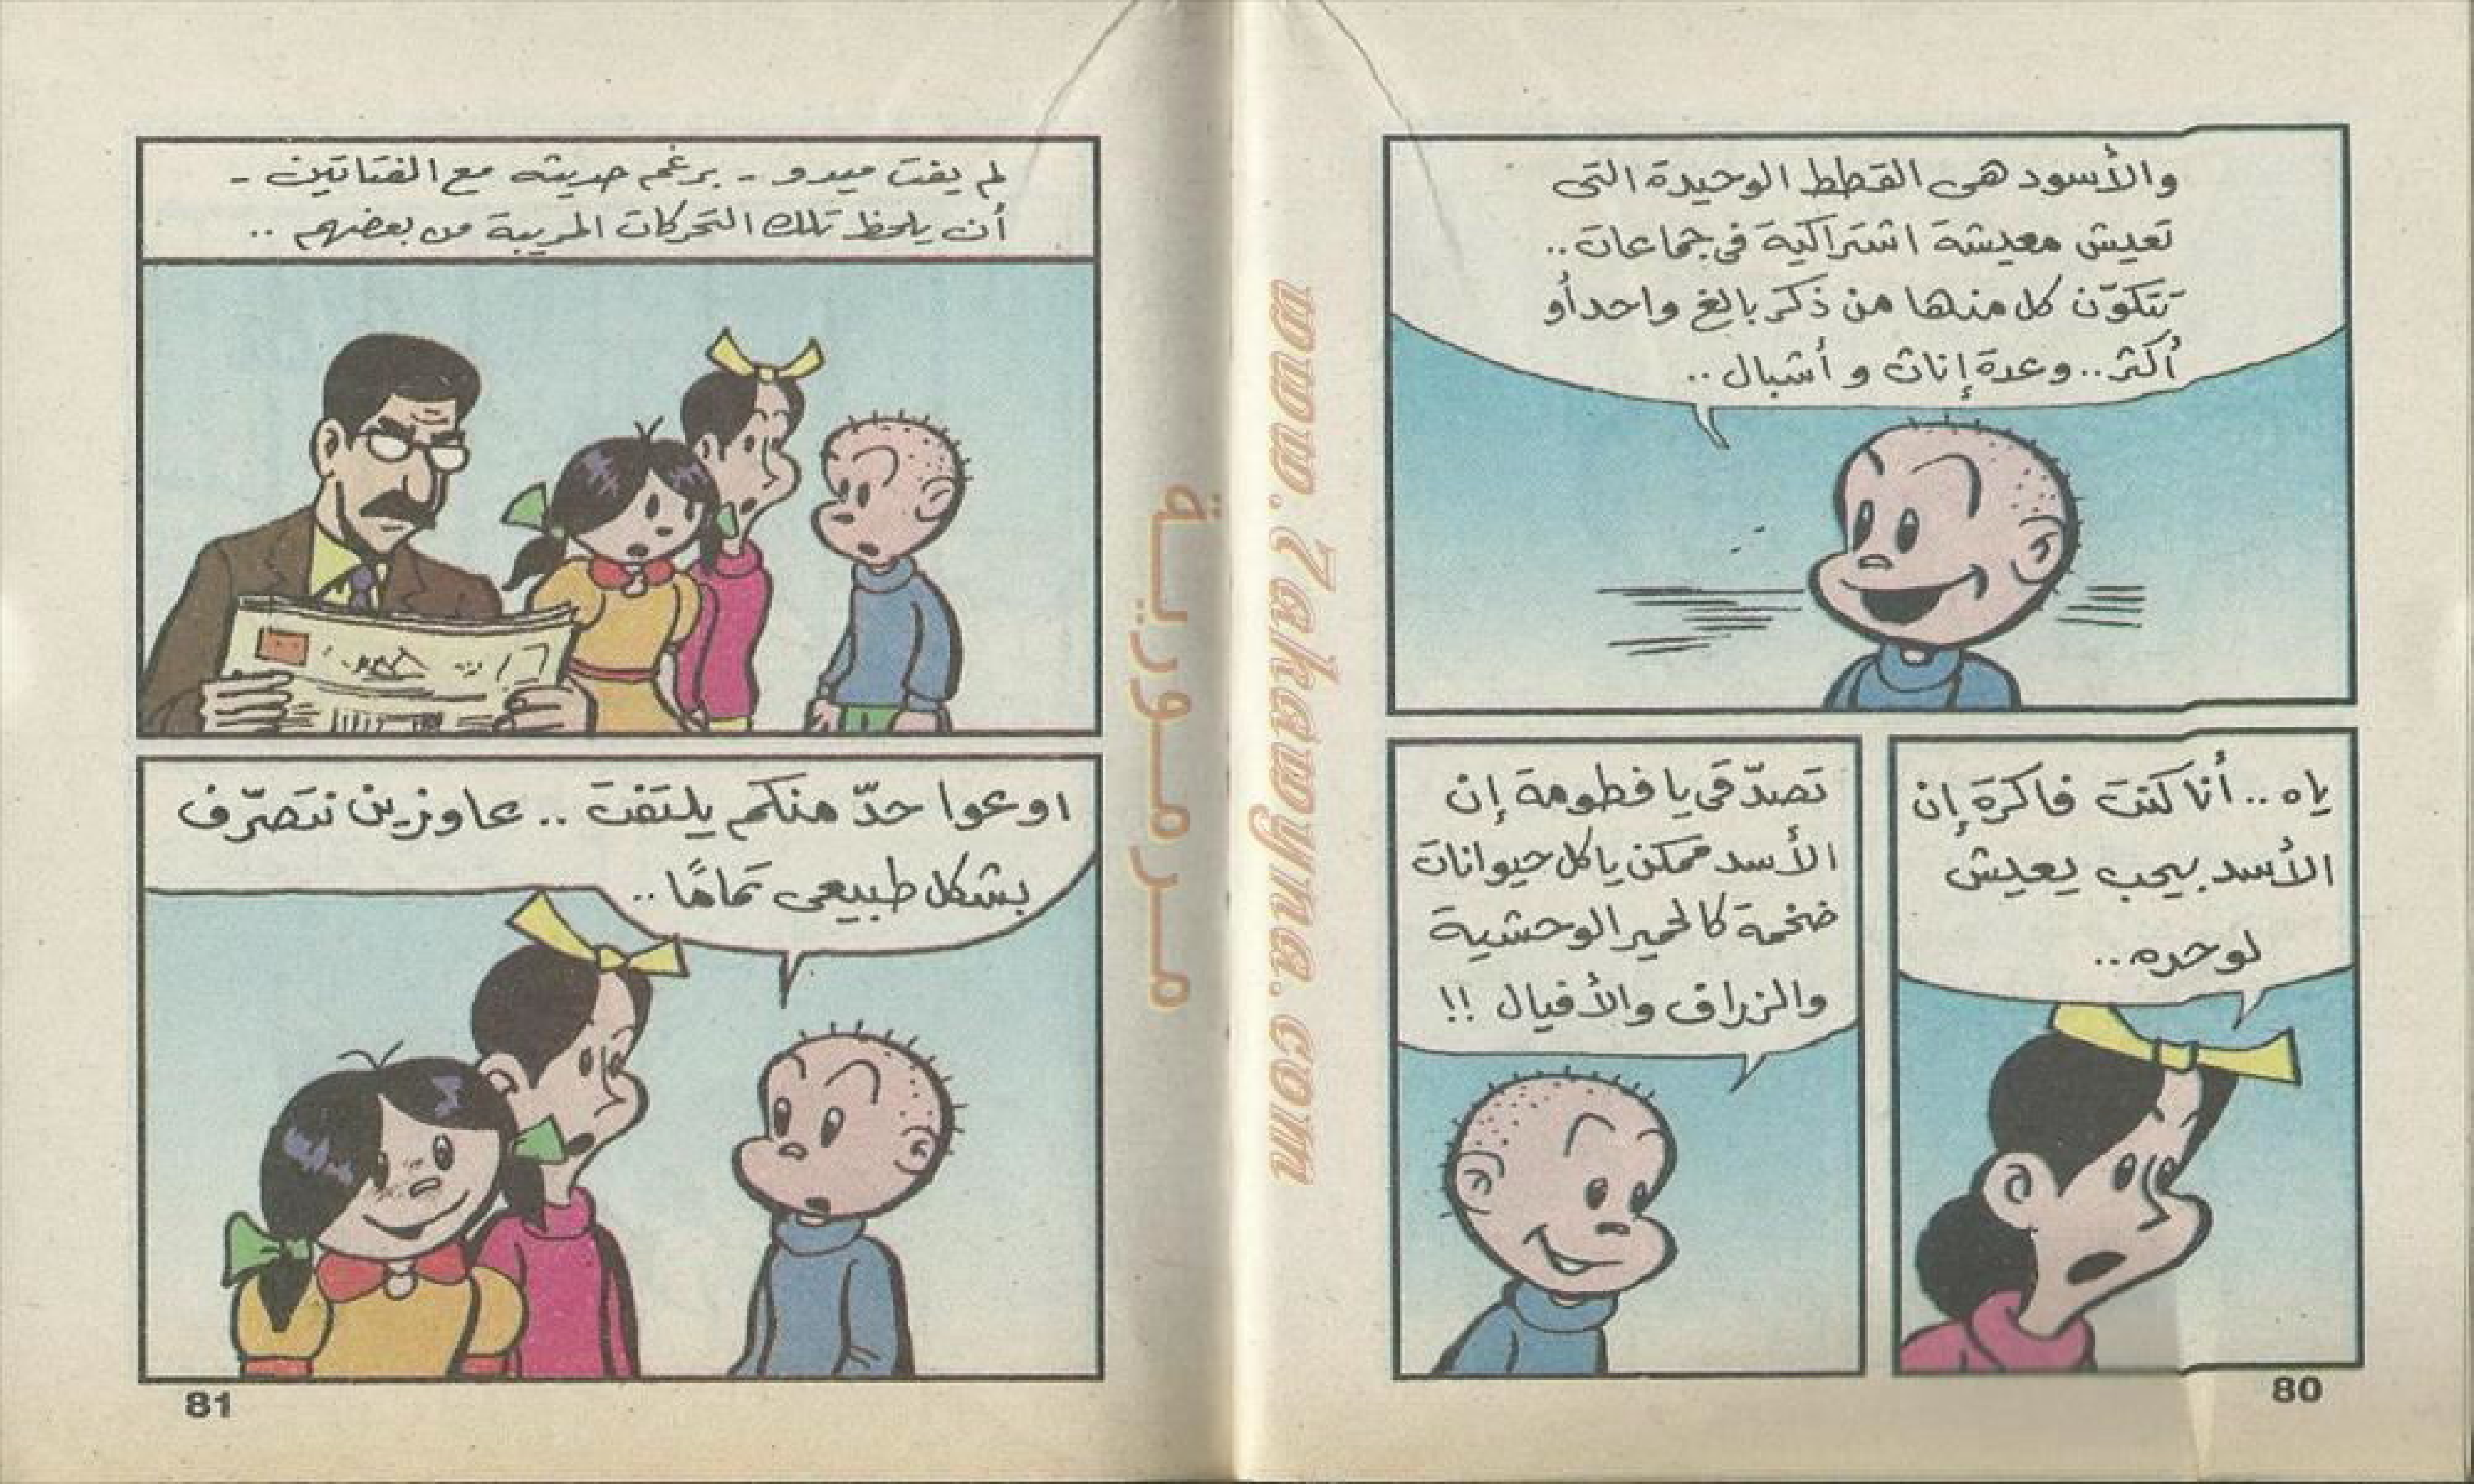 والأسود هى القطط الوحيدة التى
تعيش معيشة اشتراكية فى جماعات..
تتكوّن كل منها من ذكر بالغ واحد أو
أكثر.. وعدة إناث و أشبال..
ياه.. أنا كنت فاكرة إن
الأسد بيحب يعيش
لوحده..
تصدّقى يا فطومة إن
الأسد ممكن ياكل حيوانات
ضخمة كالحمير الوحشية
والزراف والأفيال !!
80
www.7akawyna.com
مرمورية
لم يفت ميدو - برغم حديثه مع الفتاتين -
أن يلحظ تلك التحركات المريبة من بعضهم ..
اوعوا حدّ منكم يلتفت .. عاوزين نتصرّف
بشكل طبيعى تمامًا..
81